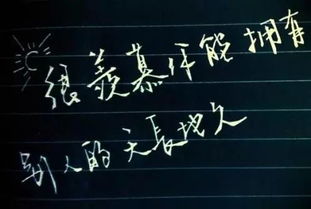 很羡慕你能拥有
别人的天长地久